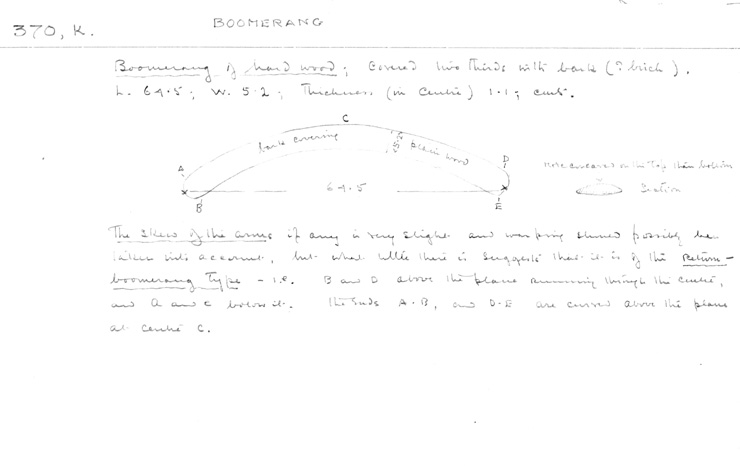 370, K.
BOOMERANG
Boomerang of hard wood; Covered two thirds with bark (? birch).
L. 64.5; W. 5.2; Thickness (in centre) 1.1; cent.
C
bark covering
5.2
plain wood
A
D
64.5
B
E
more convex on the top than bottom
Section
The skew of the arms if any is very slight and warping should possibly be
taken into account, but what little there is suggests that it is of the Return-
boomerang Type - i.e. B and D above the plane running through the centre,
and A and E below it. The ends A-B, and D-E are curved above the plane
at centre C.